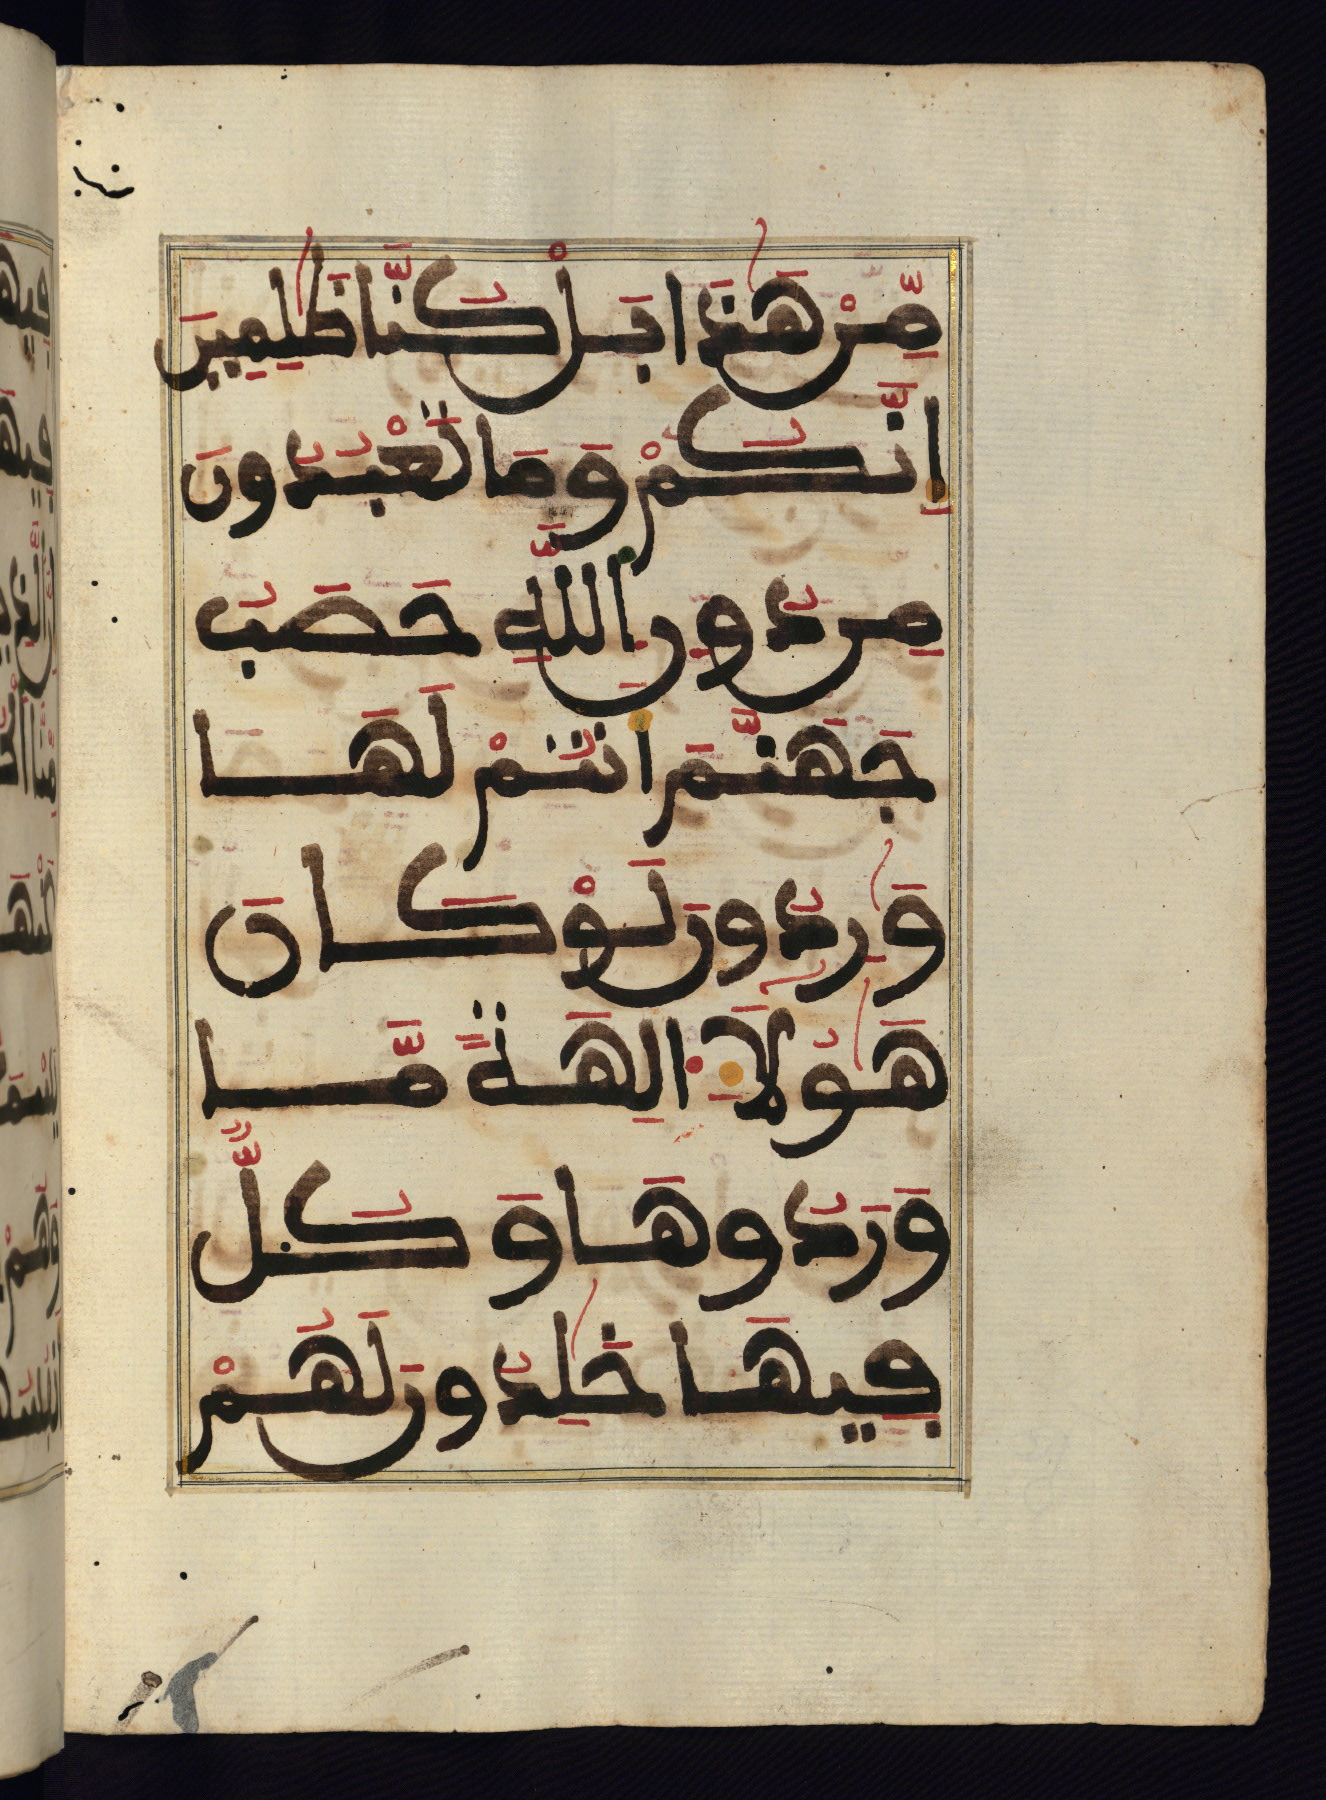 مِّنْ هَٰذَا بَلْ كُنَّا ظَٰلِمِينَ
إِنَّكُمْ وَمَا تَعْبُدُونَ
مِن دُونِ اللَّهِ حَصَبُ
جَهَنَّمَ أَنتُمْ لَهَا
وَٰرِدُونَ لَوْ كَانَ
هَٰؤُلَاءِ الِهَةً مَّا
وَرَدُوهَا وَكُلٌّ
فِيهَا خَٰلِدُونَ لَهُمْ